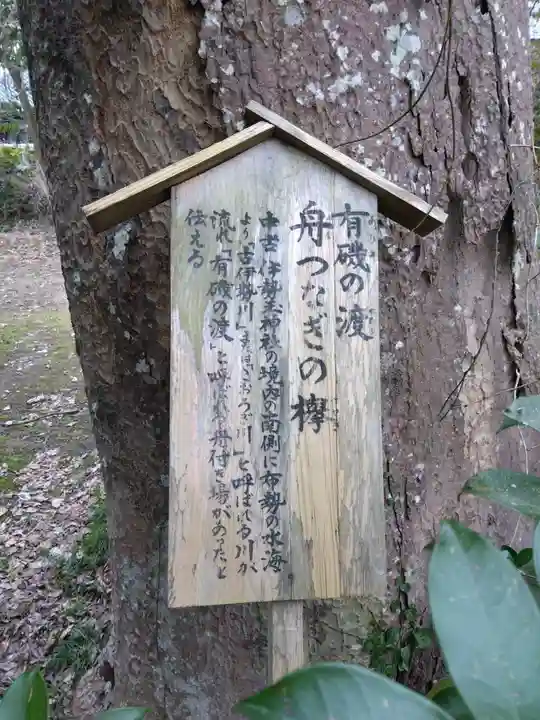 有磯の渡
舟つなぎの欅
中古伊勢玉神社の境内の南側に布勢の水海
より「古伊勢川」またはおうぎ川」と呼ばれる川が
流れ「有磯の渡」と呼ばれ舟付き場があったと
伝える